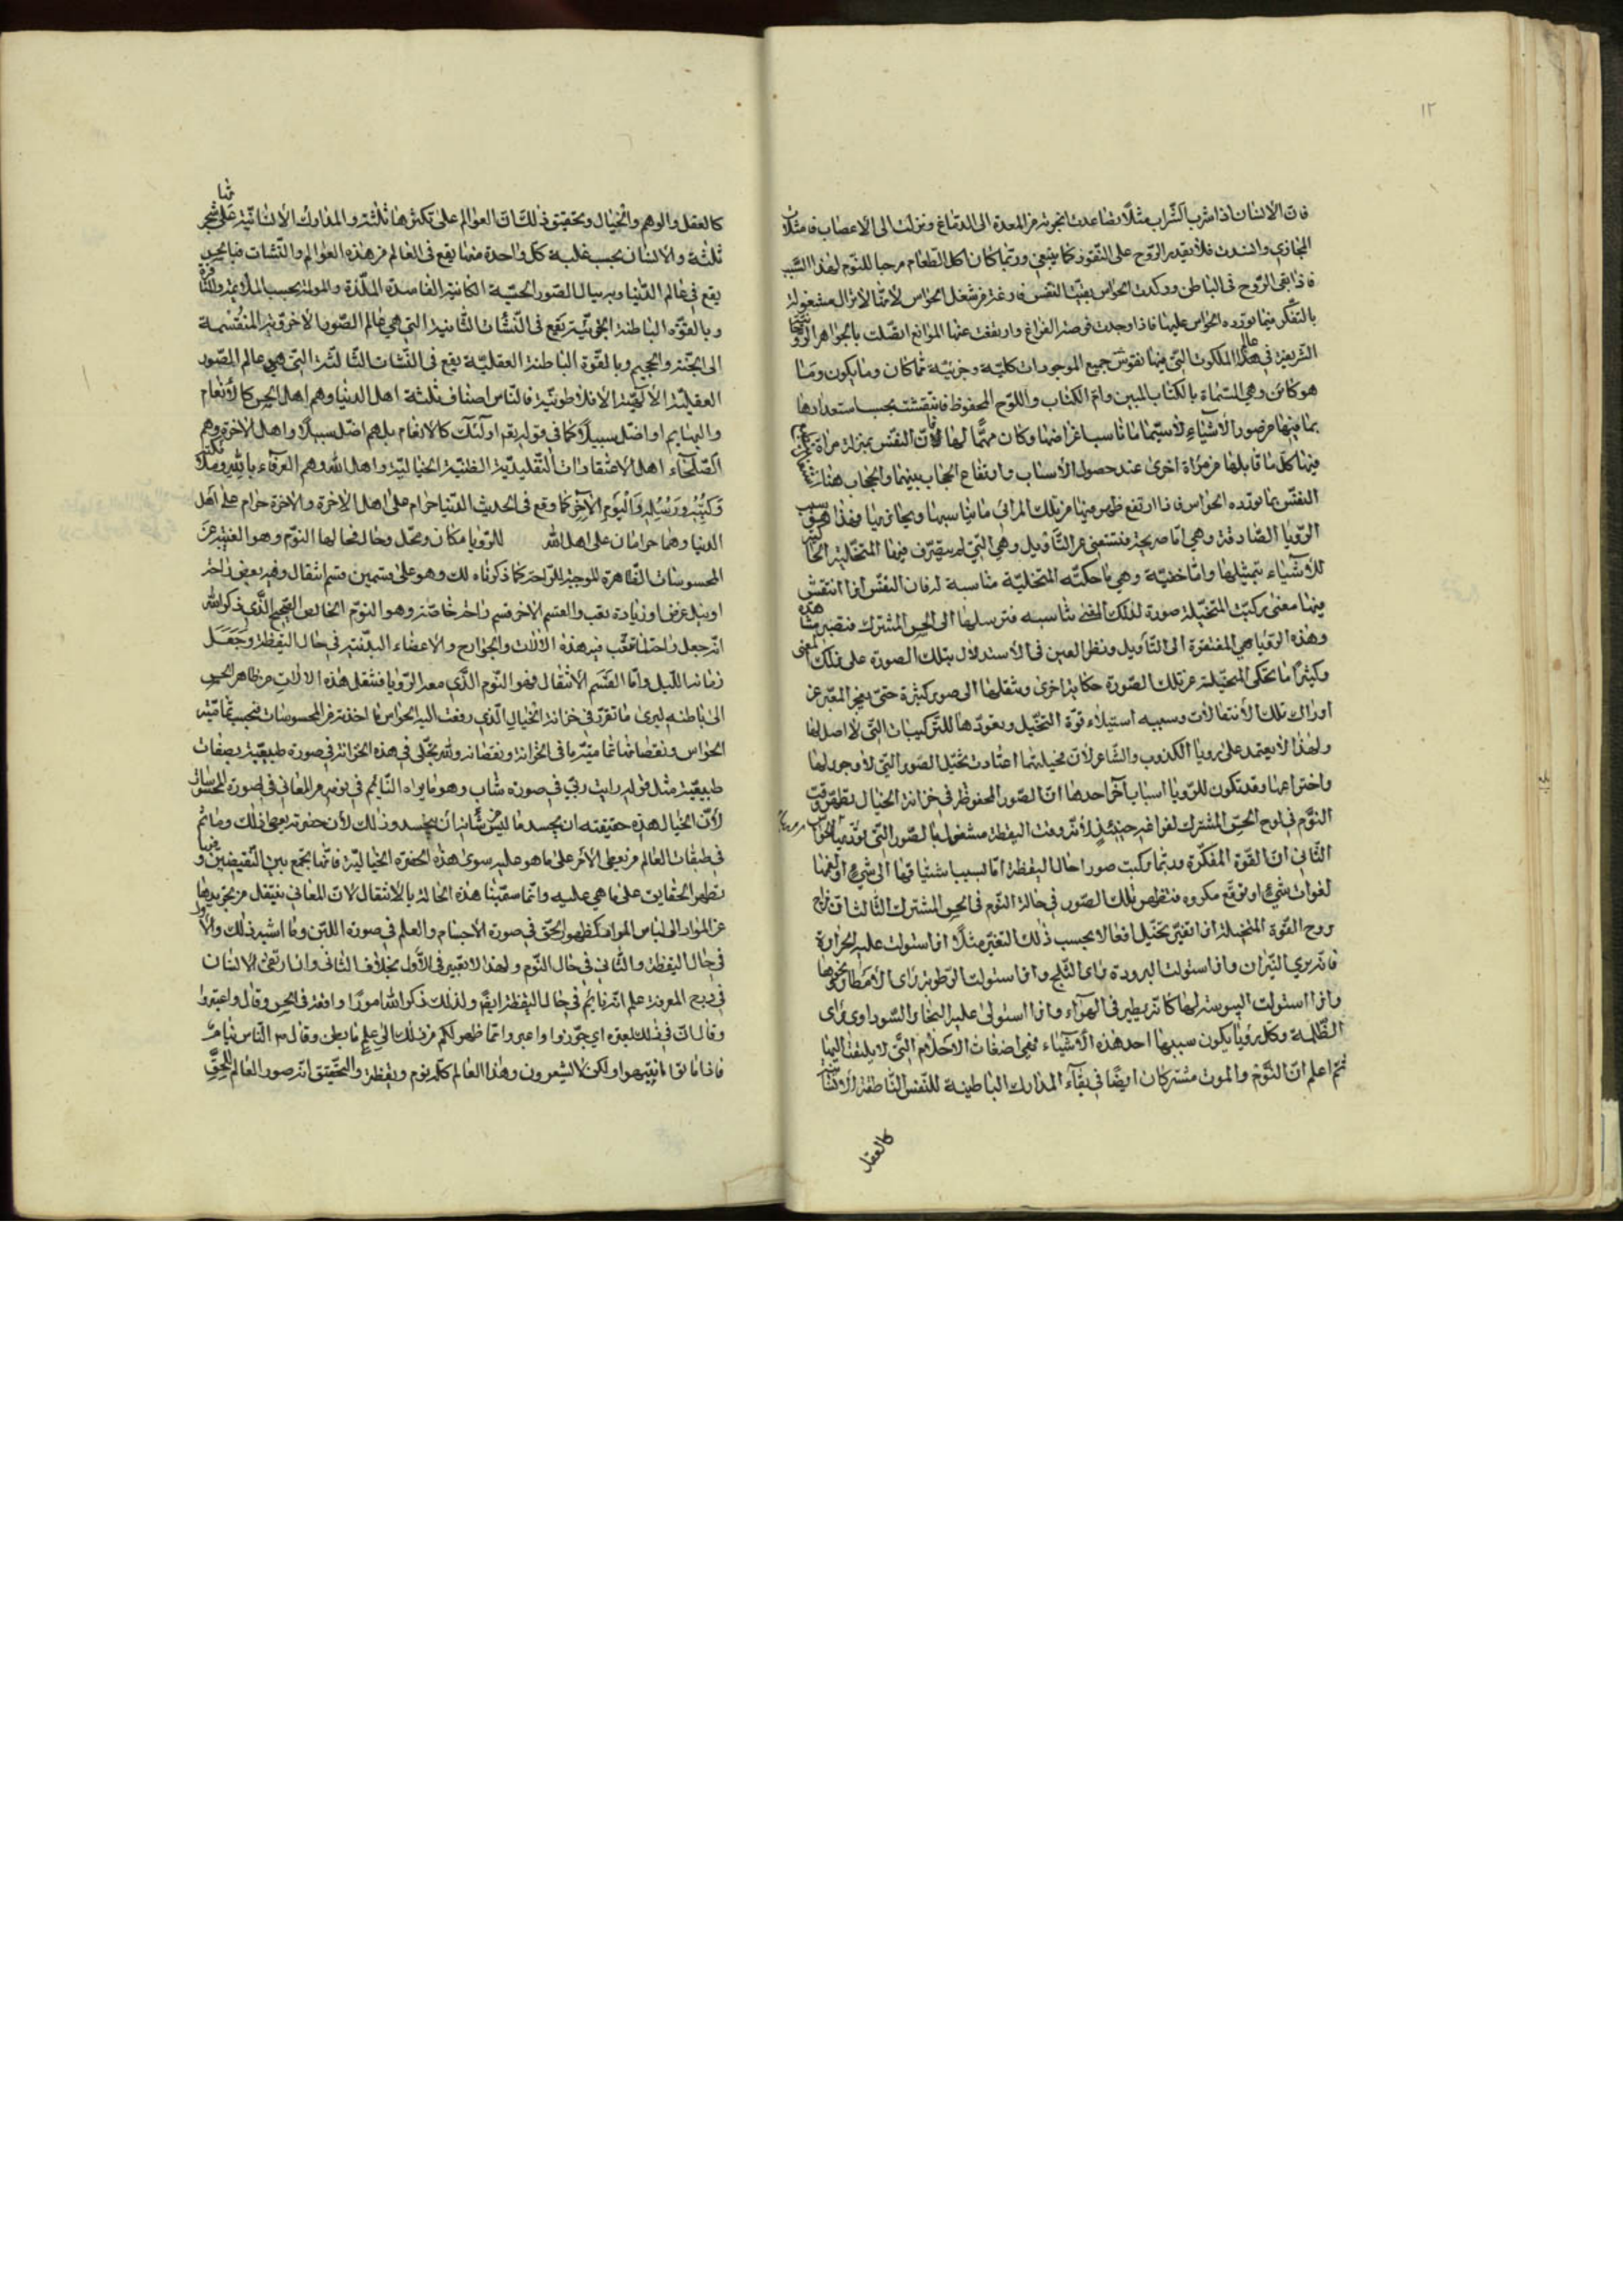 ١٢
فان الانسان اذا شرب الشراب مثلا تصاعدت ابخرته من المعدة الى الدماغ ونزلت الى الاعصاب فامتلأت
المجاري وانسدت فلا يقدر الروح على النفوذ كما ينبغي وربما كان اكل الطعام موجبا للنوم لهذا السبب
فاذا بقى الروح في الباطن وركدت الحواس بقيت النفس فارغة من شغل الحواس لانها لا تزال مشغولة
بالتفكر فيما تورده الحواس عليها فاذا وجدت فرصة الفراغ وارتفعت عنها الموانع اتصلت بالجواهر الروحانية
الشريفة في عالم الملكوت التي فيها نقوش جميع الموجودات كلية وجزئية مما كان وما يكون وما
هو كائن وهي المسماة بالكتاب المبين وام الكتاب واللوح المحفوظ فانتقشت بحسب استعدادها
بما فيها من صور الاشياء لا سيما ما ناسب اغراضها وكان مهما لها فان النفس بمنزلة مرآة
فيها كل ما قابلها من مرآة اخرى عند حصول الاسباب وارتفاع الحجاب بينهما والحجاب هنا
النفس بما تورده الحواس فاذا ارتفع ظهر فيها من تلك المرائي ما يناسبها ويحاذيها وهذا هو سبب
الرؤيا الصادقة وهي اما صريحة فتستغنى عن التأويل وهي التي لم يتصرف فيها المتخيلة
للاشياء بتمثيلها واما خفية وهي ما حكته المتخيلة مناسبة له فان النفس اذا انتقش
فيها معنى ركبت المتخيلة صورة لذلك المعنى تناسبه فترسلها الى الحس المشترك فتصير مشاهدة
وهذه الرؤيا هي المفتقرة الى التأويل ونظر المعبر في الاستدلال بتلك الصورة على ذلك المعنى
وكثيرا ما تحكى المتخيلة عن تلك الصورة حكاية اخرى وتنقلها الى صور كثيرة حتى يعجز المعبر عن
ادراك تلك الانتقالات وسببه استيلاء قوة التخيل وتعودها للتركيبات التي لا اصل لها
ولهذا لا يعتمد على رؤيا الكذوب والشاعر لان مخيلتهما اعتادت تخيل الصور التي لا وجود لها
واختراعها وقد تكون للرؤيا اسباب آخر احدها ان الصور المحفوظة في خزانة الخيال تظهر وقت
النوم في لوح الحس المشترك لفراغه حينئذ لانه وقت اليقظة مشغول بالصور التي تؤديها الحواس
الثاني ان القوة المفكرة ربما ركبت صورا حال اليقظة اما لسبب اشتياقها الى شيء او لغمها
لفوات شيء او توقع مكروه فتظهر تلك الصور في حالة النوم في الحس المشترك الثالث ان مزاج
روح القوة المتخيلة اذا تغير تخيل افعالا بحسب ذلك التغير مثلا اذا استولت عليه الحرارة
فانه يرى النيران واذا استولت البرودة راى الثلج واذا استولت الرطوبة راى الامطار ونحوها
واذا استولت اليبوسة لها كانه يطير في الهواء واذا استولى عليه البخار السوداوى راى
الظلمة وكل رؤيا يكون سببها احد هذه الاشياء فهي اضغاث الاحلام التي لا يلتفت اليها
ثم اعلم ان النوم والموت مشتركان ايضا في بقاء المدارك الباطنية للنفس الناطقة الانسانية
كالعقل
كالعقل والوهم والخيال وتحقيق ذلك ان العوالم على تكثرها ثلثة والمدارك الانسانية على شجونها
ثلثة والانسان بحسب غلبة كل واحدة منها يقع في العالم من هذه العوالم والنشات فبالحس
يقع في عالم الدنيا وبه ينال الصور الحسية الكائنة الفاسدة الملذة والمولمة بحسب الملائمة والمنافرة
وبالقوة الباطنة الجزئية يقع في النشات الثانية التي هي عالم الصور الاخروية المنقسمة
الى الجنة والجحيم وبالقوة الباطنة العقلية يقع في النشات الثالثة التي هي عالم الصور
العقلية الالهية الافلاطونية فالناس اصناف ثلثة اهل الدنيا وهم اهل الحس كالانعام
والبهايم او اضل سبيلا كما في قوله تعم اولئك كالانعام بل هم اضل سبيلا واهل الاخرة وهم
الصلحاء اهل الاعتقادات التقليدية الظنية الخيالية واهل الله وهم العرفاء بالله وملائكته
وكتبه ورسله واليوم الآخر كما وقع في الحديث الدنيا حرام على اهل الاخرة والاخرة حرام على اهل
الدنيا وهما حرامان على اهل الله للرؤيا مكان ومحل وحال فحالها النوم وهو الغيبة عن
المحسوسات الظاهرة الموجبة للراحة كما ذكرناه لك وهو على قسمين قسم انتقال وفيه بعض راحة
او نيل غرض او زيادة تعب والقسم الاخر قسم راحة خاصة وهو النوم الخالص الصحيح الذي ذكر الله
انه جعل راحة لما تعب فيه هذه الالات والجوارح والاعضاء البدنية في حال اليقظة وجعل
زمانه الليل واما القسم الانتقال فهو النوم الذي معه الرؤيا فتنتقل هذه الالات من ظاهر الحس
الى باطنه ليرى ما تقرر في خزانة الخيال الذي رفعت اليه الحواس ما اخذته من المحسوسات بحسب تمامية
الحواس ونقصانها تمامية ما في الخزانة ونقصانه ولله تجلى في هذه الخزانة في صورة طبيعية بصفات
طبيعية مثل قوله رايت ربى في صورة شاب وهو ما يراه النائم في نومه من المعاني في صورة المحسوسات
لان الخيال هذه حقيقته ان يجسد ما ليس من شأنه ان يتجسد وذلك لان حضرته يعطى ذلك وما ثم
في طبقات العالم من يعطى الامر على ما هو عليه سوى هذه الحضرة الخيالية فانها تجمع بين النقيضين وفيها
تظهر الحقايق على ما هي عليه وانما سمينا هذه الحالة بالانتقال لان المعاني ينتقل من تجريدها
عن المواد الى لباس المواد كظهور الحق في صورة الاجسام والعلم في صورة اللبن وما اشبه ذلك والاول
في حال اليقظة والثاني في حال النوم ولهذا لا تعبير في الاول بخلاف الثاني واذا رتقى الانسان
في درج المعرفة علم انه نايم في حال اليقظة ايضا ولذلك ذكر الله امورا واقعة في الحس وقال واعتبروا
وقال ان في ذلك لعبرة اي جوزوا واعبروا مما ظهر لكم من ذلك الى علم ما بطن وقال ص الناس نيام
فاذا ماتوا انتبهوا ولكن لا تشعرون وهذا العالم كله نوم ويقظة والتحقيق انه صور العالم للحق